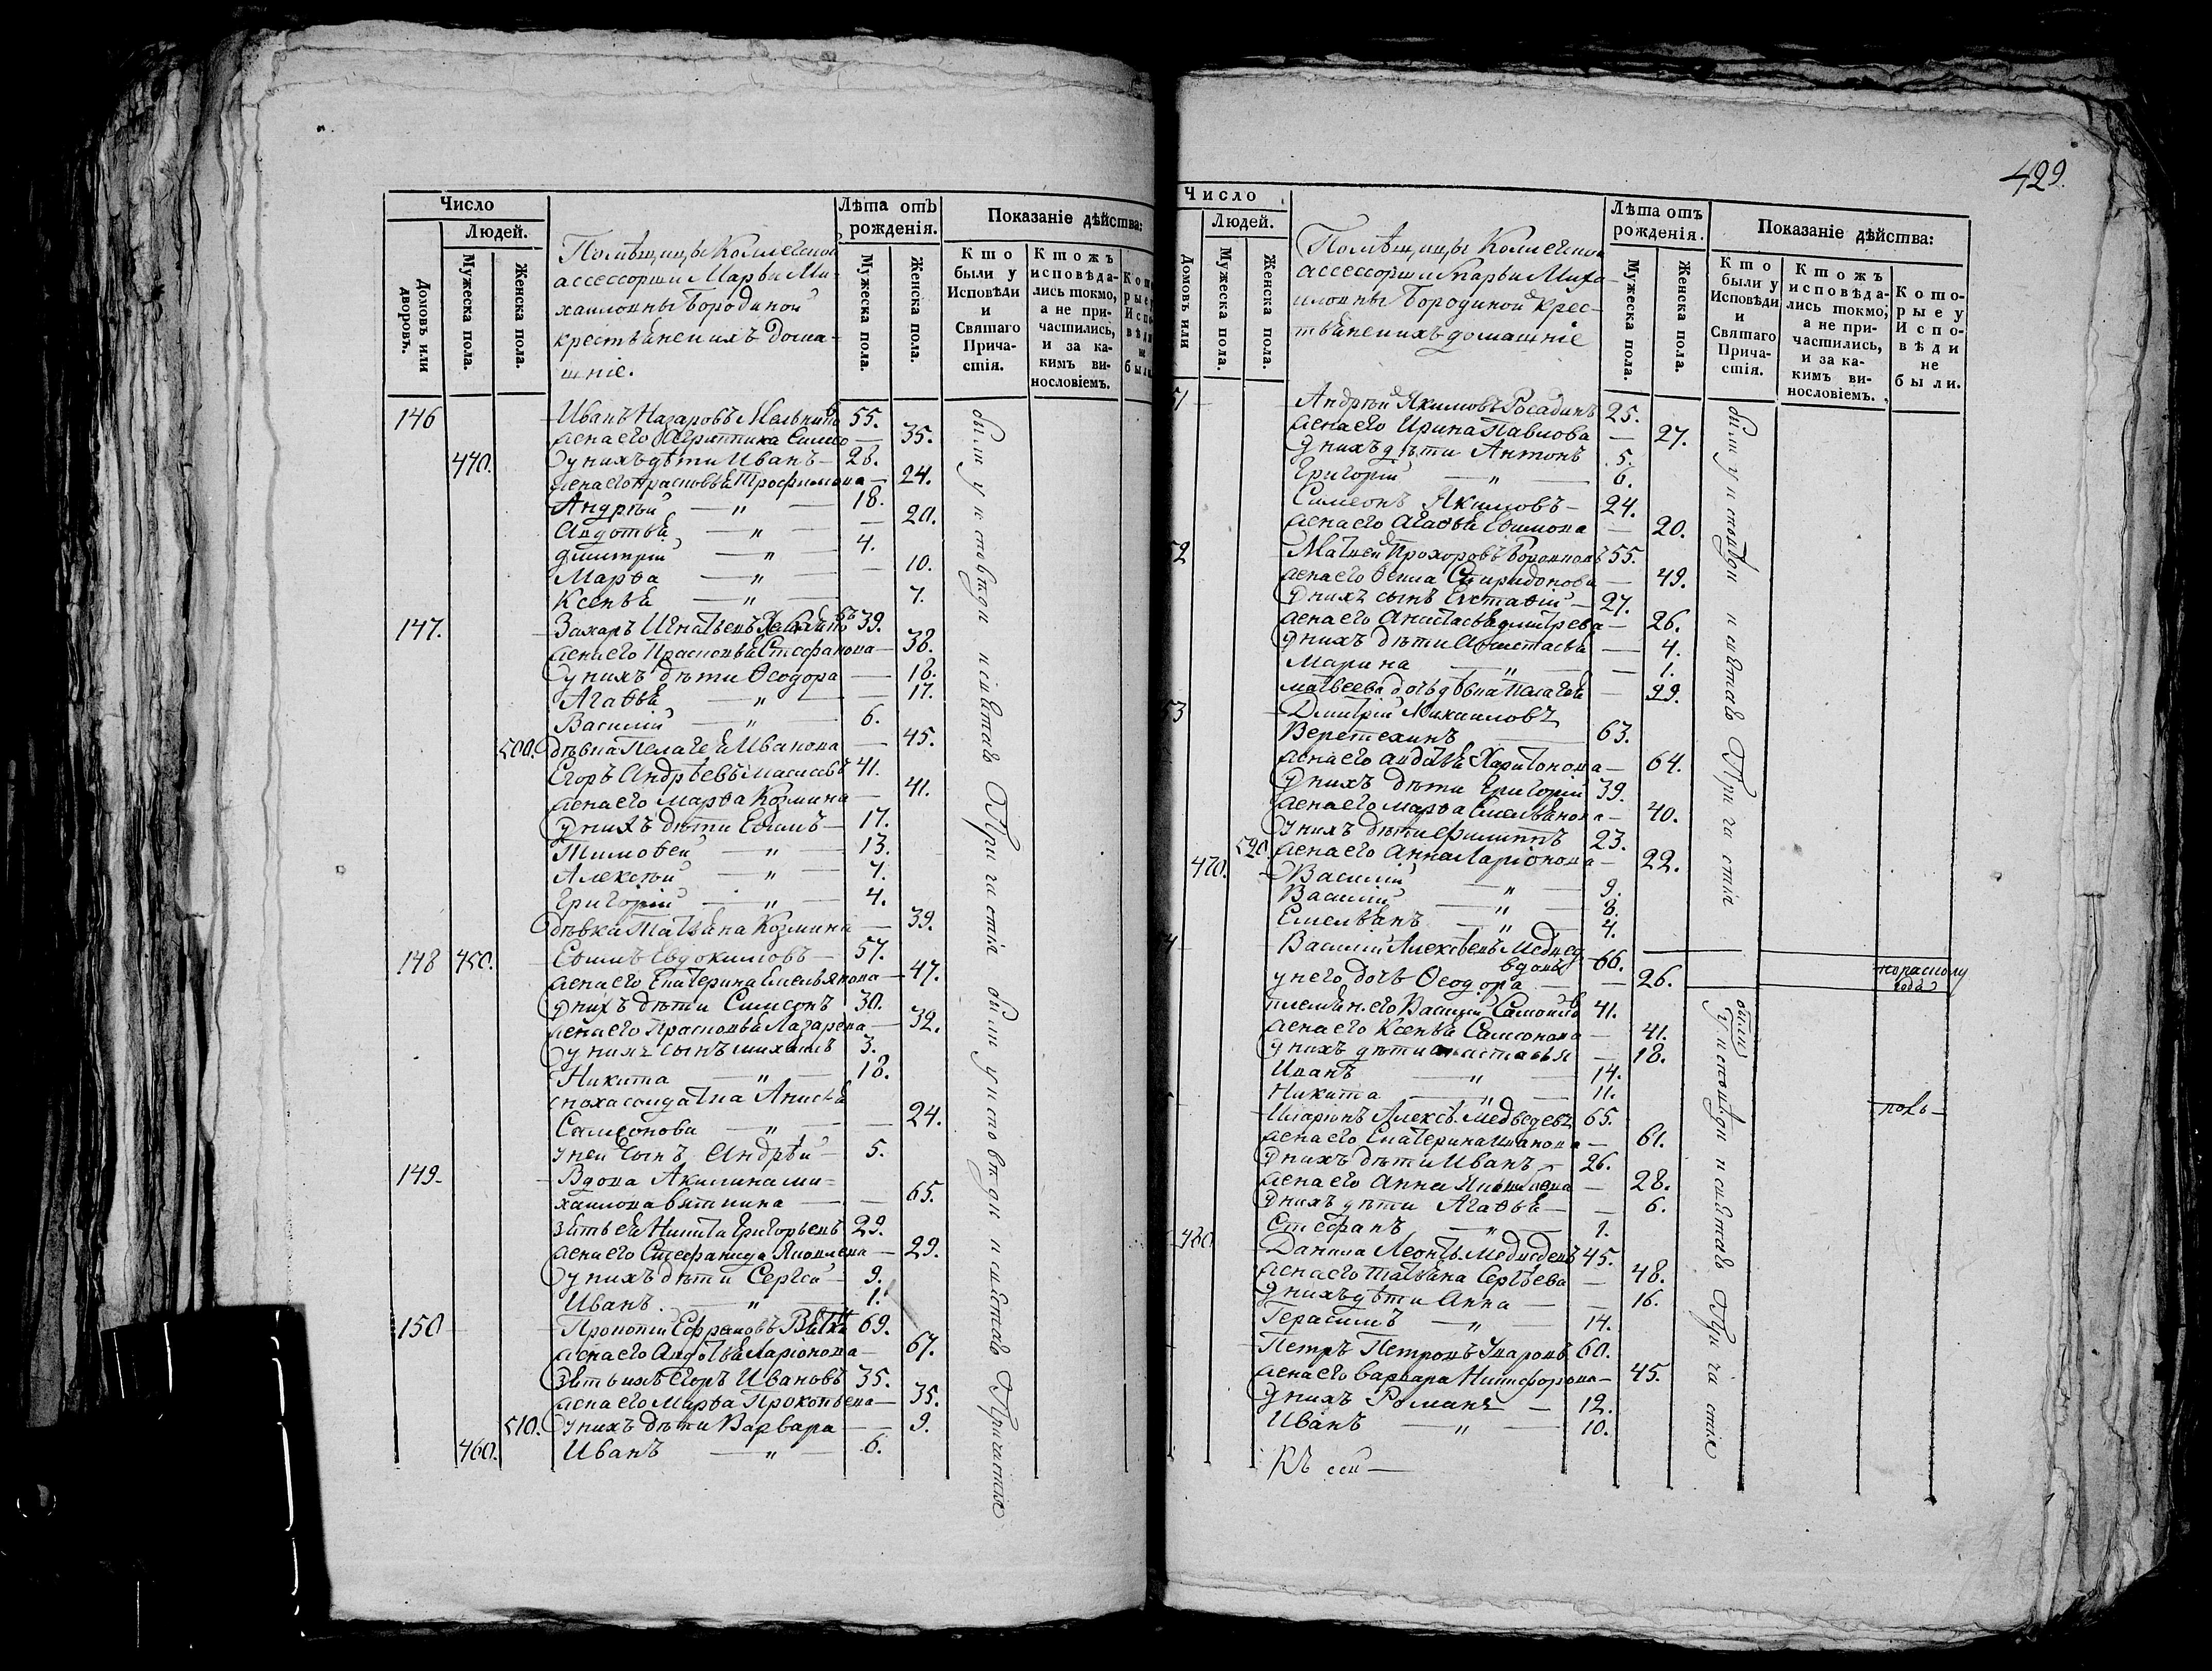 429.
Число
Людей.
Домовъ или дворовъ.
Мужеска пола.
Женска пола.
Помѣщицы Коллегской
ассессорши Марьи Ми-
хаиловны Бородиной
крестьяне и ихъ дома-
шніе.
Лѣта отъ рожденія.
Мужеска пола.
Женска пола.
Показаніе дѣйства:
Кто были у Исповѣди и Святаго Прича-стія.
Ктожъ исповѣда-лись токмо, а не при-частились, и за ка-кимъ ви-нословіемъ.
146 Иванъ Назаровъ 55.
жена его 35.
440. у нихъ дѣти Иванъ — 28.
жена его Прасковья Трофимова — 24.
Андрѣй — „ — 18.
Авдотья — „ — 20.
Дмитрій — „ — 4.
Марѳа — „ — 10.
Ксенья — „ — 7.
147. Захаръ Игнатьевъ 39.
жена его Прасковья Стефанова — 38.
у нихъ дѣти Ѳеодора — 18.
Агаѳья — „ — 17.
Василій — „ — 6.
500. дѣвка Пелагея Иванова — 45.
Егоръ Андрѣевъ 41.
жена его Марѳа Козмина — 41.
у нихъ дѣти Ефимъ — 17.
Тимоѳей — „ — 13.
Алексѣй — „ — 7.
Григорій — „ — 4.
дѣвка Татьяна Козмина — 39.
148 450. Ефимъ Евдокимовъ — 57.
жена его Екатерина Емельянова — 47.
у нихъ дѣти Симеонъ 30.
жена его Прасковья Лазарева — 32.
у нихъ сынъ Михаилъ 3.
Никита — „ — 18.
сноха солдатка Анисья
Самсонова — „ — 24.
у ней сынъ Андрѣй — 5.
149. Вдова Акилина Ми-
хаилова — 65.
зять ея Никита Григорьевъ 29.
жена его Стефанида Яковлева — 29.
у нихъ дѣти Сергѣй — 9.
Иванъ. — „ — 1.
150 Прокопій Ефремовъ 69.
жена его Авдотья Ларіонова — 67.
зять ихъ Егоръ Ивановъ 35.
жена его Марѳа Прокопьева — 35.
510. у нихъ дѣти Варвара — 9.
460. Иванъ — „ — 6.
были у исповѣди и святаго Причастія были у исповѣди и святаго Причастія
Число
Людей.
Домовъ или
Мужеска пола.
Женска пола.
Помѣщицы Коллегской
ассессорши Марьи Миха-
иловны Бородиной крес-
тьяне и ихъ домашніе
Лѣта отъ рожденія.
Мужеска пола.
Женска пола.
Показаніе дѣйства:
Кто были у Исповѣди и Святаго Прича-стія.
Ктожъ исповѣда-лись токмо, а не при-частились, и за ка-кимъ ви-нословіемъ.
Кото-рые у Испо-вѣди не были.
51 Андрѣй Якимовъ Росадинъ 25.
жена его Ирина Павлова — 27.
у нихъ дѣти Антонъ 5.
Григорій — „ — 6.
Симеонъ Якимовъ — 24.
жена его Агаѳья Ефимова — 20.
52 Матвей Прохоровъ 55.
жена его Ѳекла Спиридонова — 49.
у нихъ сынъ Евстаѳій — 27.
жена его Анастасья Дмитрева — 26.
у нихъ дѣти 4.
Марина — „ — 1.
Матвеева дочь дѣвка Пелагея — 29.
53 Дмитрій Михаиловъ
Веретехинъ — 63.
жена его Авдотья Харитонова — 64.
у нихъ дѣти Григорій 39.
жена его Марѳа Емельянова — 40.
у нихъ дѣти Филиппъ 23.
520. жена его Анна Ларіонова — 22.
470. Василій — „ — 9.
Василій — „ — 8.
Емельянъ — „ — 4.
Василій Алексѣевъ Медвед
вдовъ 66.
у него дочь Ѳеодора — 26.
племян. его Василій 41.
жена его Ксенья Самсонова — 41.
у нихъ дѣти Анастасья — 18.
Иванъ — „ — 14.
Никита — „ — 11.
Иларіонъ Алексѣ. Медведевъ 65.
жена его Екатерина Иванова — 61.
у нихъ дѣти Иванъ — 26.
жена его Анна Яковлева — 28.
у нихъ дѣти Агаѳья — 6.
Стефанъ — „ — 1.
480 Данила Леонть. Медведевъ 45.
жена его Татьяна Сергѣева — 48.
у нихъ дѣти Анна — 16.
Герасимъ — „ — 14.
Петръ Петровъ 60.
жена его Варвара Никифорова — 45.
у нихъ Романъ — 12.
Иванъ — „ — 10.
были у исповѣди и святаго Причастія
по расколу
были у исповѣди и святаго Причастія